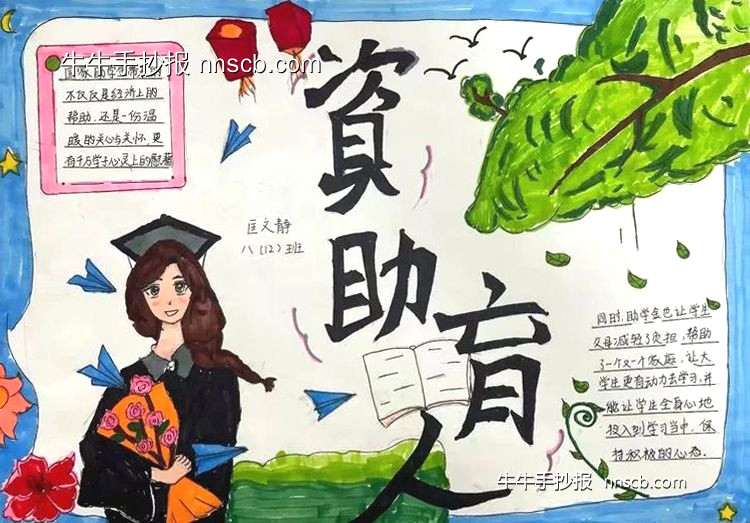 牛牛手抄报 nnscb.com
国家助学
不仅仅是经济上的
帮助,还是一份温
暖的关心与关怀,更
有千万学子心灵上的慰藉
資助育人
匡文静
八(12)班
同时,助学金也让学生
父母减轻了负担,帮助
了一个又一个家庭,让大
学生更有动力去学习,并
能让学生全身心地
投入到学习当中,保
持积极的心态.
牛牛手抄报 nnscb.com